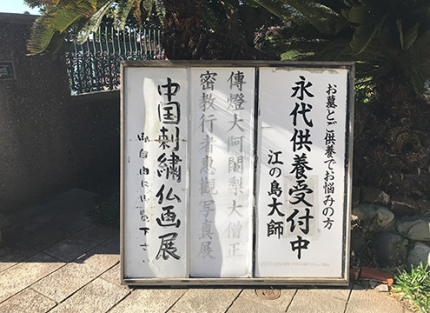 お墓とご供養でお悩みの方
永代供養受付中
江の島大師
傳燈大阿闍梨大僧正
密教行者恵觀写真展
中国刺繍仏画展
ご自由にご覧下さい